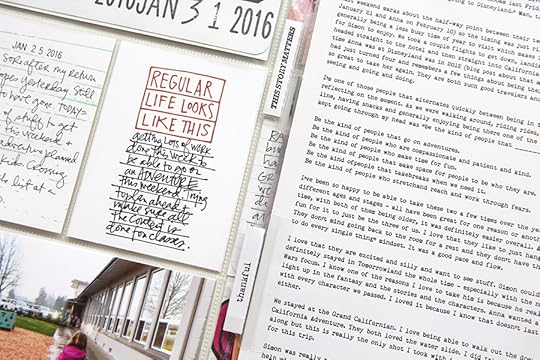 2016 JAN 31 2016
JAN 25 2016
after my return
yesterday. Still
gone. TODAY=
of stuff to get
the weekend +
adventure planned
kids. Crossing
list at a
REGULAR
LIFE LOOKS
LIKE THIS
getting lots of work
done this week to
be able to go on
an ADVENTURE
this weekend. Trying
to plan ahead +
make sure all
the content is
done for classes.
THIS STORY MATTERS
thankful
weekend marks about the half-way point between their
January 21 and Anna on February 10) so the timing was just
generally being a less busy time of year to visit which
for Simon to enjoy. We took a couple flights to get down,
headed straight to the hotel and then straight into California
time Anna was at Disneyland was in 2010 (blog post about that
had just turned four and remembers a few things about being
so great to take her again. They are both such good travelers and
seeing and going and doing.
I'm one of those people that alternates quickly between being in
reflecting on the moment. As we were walking around, riding rides,
line, having snacks and generally enjoying being there one of the
kept going through my head was "be the kind of people that
Be the kind of people that go on adventures.
Be the kind of people who are compassionate and patient and kind.
Be the kind of people who make time for fun.
Be the kind of people that make space for people to be who they are.
Be the kind of people that take breaks when we need it.
Be the kind of people who stretch and reach and work through fears.
I've been so happy to be able to take these two a few times over the
different ages and stages - all have been great for different reasons.
time, with both of them being older, it was definitely easier overall.
fun for it to just be the three of us. I love that they like to just
They don't mind going back to the room for a rest and they don't have
to do every single thing mindset. It was a good pace and flow.
I love that they are excited and silly and want to see stuff. Simon
definitely stayed in Tomorrowland the whole time - especially with the
Wars focus. I know one of the reasons I love to take him is because he
light up in the fantasy and the stories and the characters. Anna wanted
with every character we passed. I loved it because I know that doesn't last
either.
We stayed at the Grand Californian. I love being able to walk out the
California Adventure. They both loved the water slide. I did
along but this is really the only shot I took with
for this trip.
Simon was really